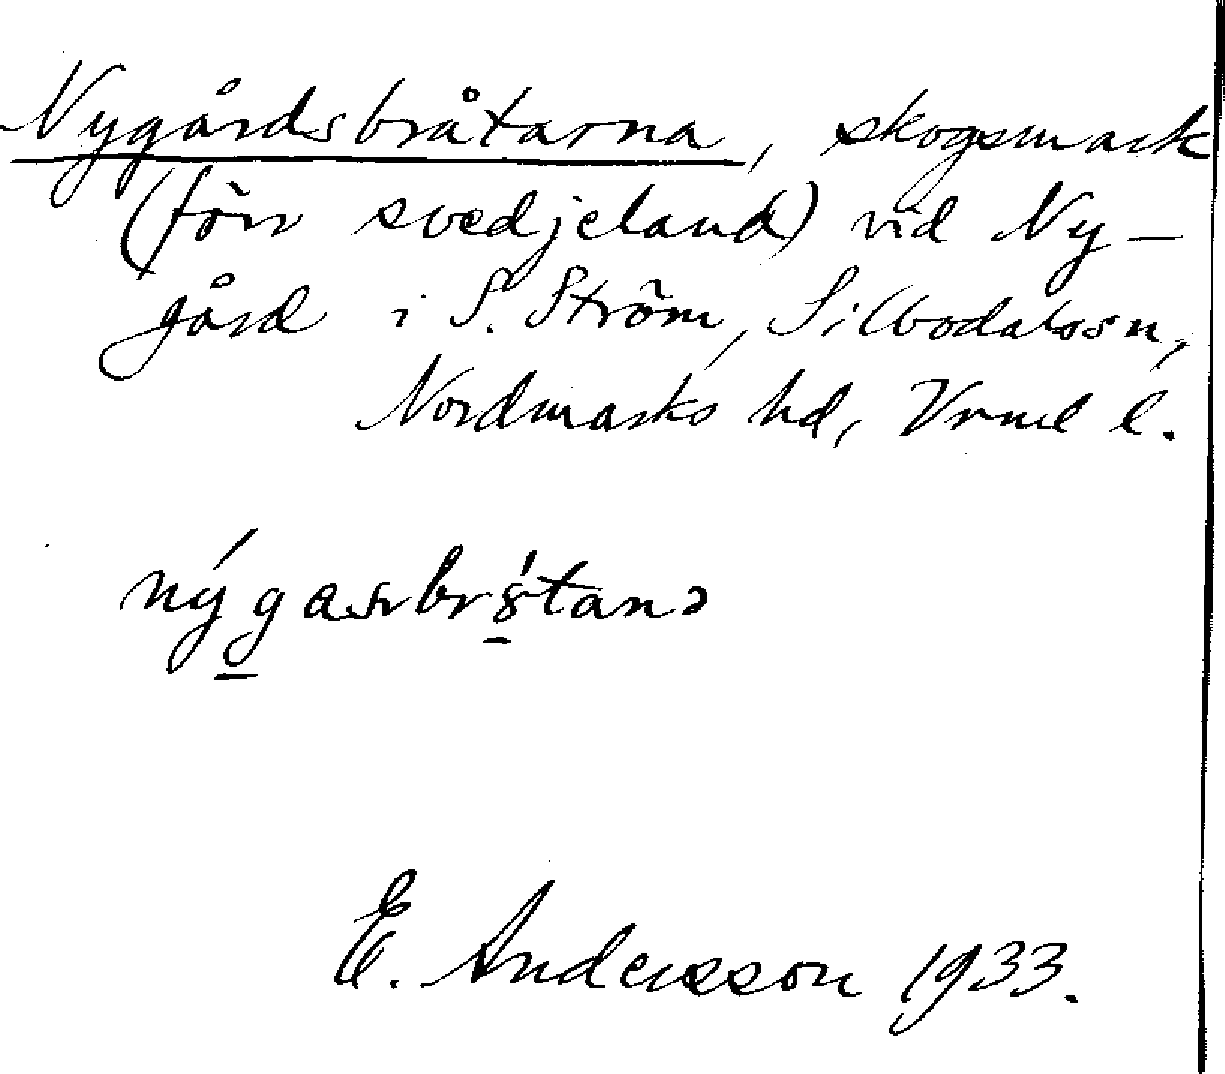 Nygårdsbråtarna, skogsmark
(förr svedjeland) vid Ny-
gård i S. Ström, Silbodalssn,
Nordmarks hd, Vrml l.

E. Andersson 1933.